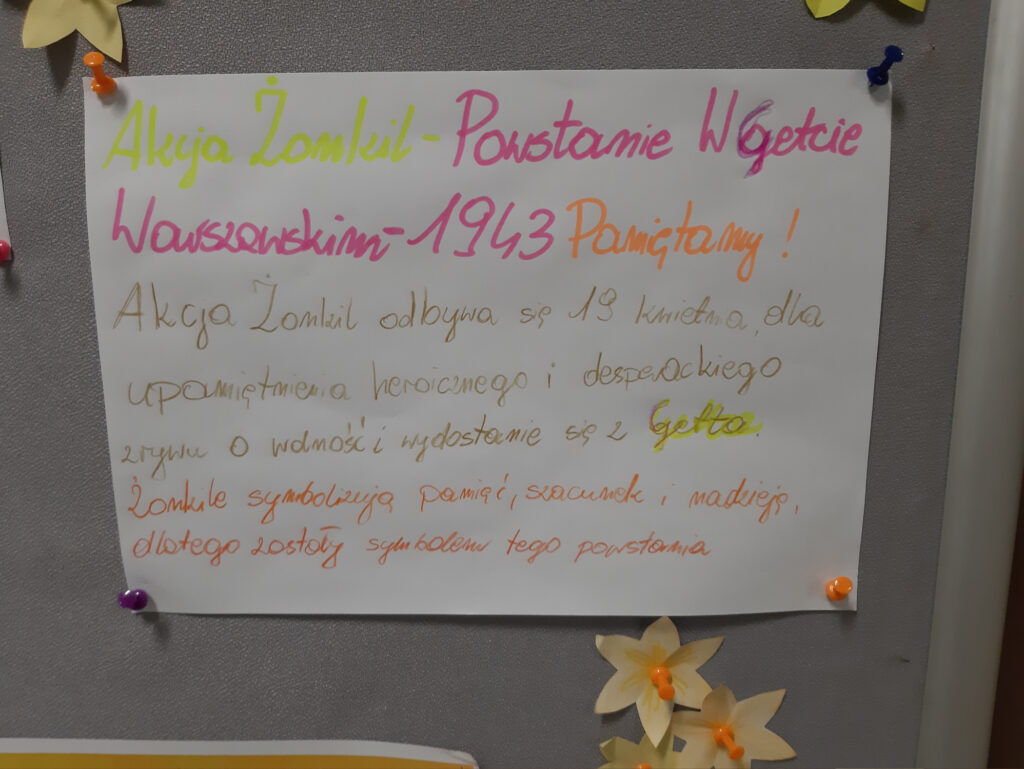 Akcja Żonkil - Powstanie W Getcie
Warszawskim - 1943 Pamiętamy!
Akcja Żonkil odbywa się 19 kwietnia, dla
upamiętnienia heroicznego i desperackiego
zrywu o wolność i wydostanie się z Getta.
Żonkile symbolizują pamięć, szacunek i nadzieję,
dlatego zostały symbolem tego powstania